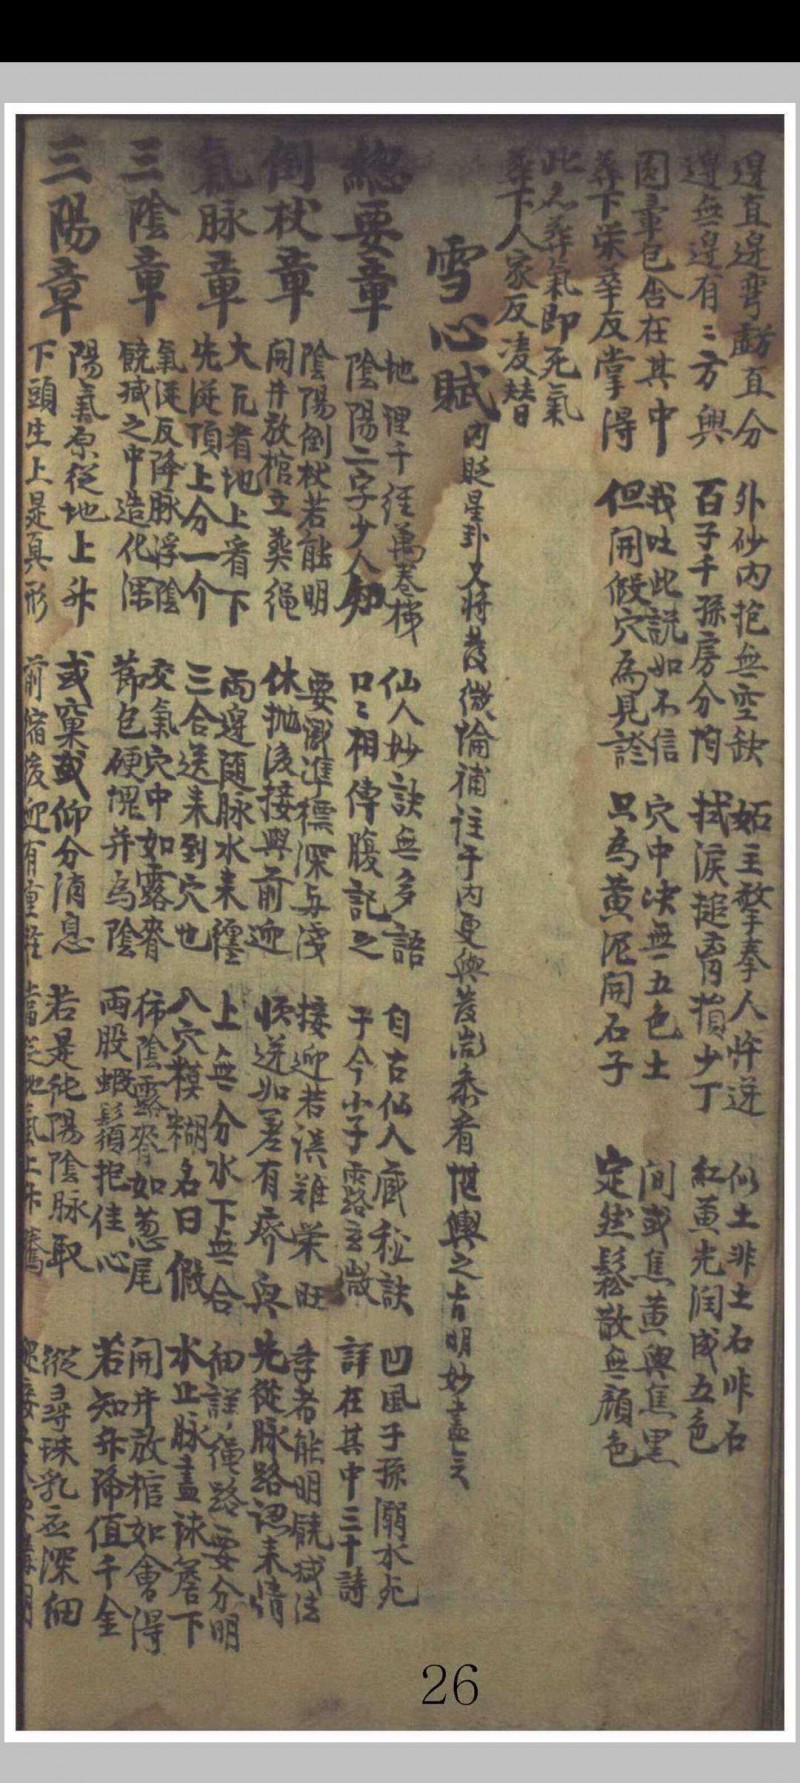 邊直邊彎戲直分 外砂內抱無空缺 妬主擎拳人忤逆 似土非土石非石
邊無邊有〻方與 百子千孫房分均 拭淚搥胷損少丁 紅黃光潤成五色
圓暈包含在其中 我吐此説如不信 穴中决無五色土 間或焦黃與焦黑
葬下榮華反掌得 但開假穴為見證 只為黃泥開石子 定然鬆散無顏色
此名葬氣即死氣
葬下人家反凌替
雪心賦 內貶星卦又將發微論補註于內更與發尚叅看堪輿之旨明妙盡之
總要章
地理千經萬卷梯 仙人妙訣無多語 自古仙人廕秘訣 凹風子孫溺水死
陰陽二字少人知 口〻相傳腹記之 于今小子露玄微 詳在其中三十詩
倒杖章
陰陽倒杖若能明 要測準標深与淺 接迎若誤難榮旺 李者能明饒減法
開井放棺立葬繩 休拋後接與前迎 順逆如差有疥與 先從脉路認来情
氣脉章
大凡看地上看下 兩邊随脉水来纏 上無分水下無合 細詳繩路要分明
先從頂上分一介 三合送来到穴也 入穴糢糊名曰假 水止脉盡球簷下
三陰章
氣從反降脉浮陰 交氣穴中如露脊 稀陰露脊如葱尾 開井放棺如會得
饒減之中造化深 節包硬塊并為陰 兩股蝦鬚抱佳心 若知升降值千金
三陽章
陽氣原從地上升 或窠或仰分消息 若是純陽陰脉取 縱尋珠乳並深細
下頭生上是真形 前縮後迎有重 當從地氣上升騰
26